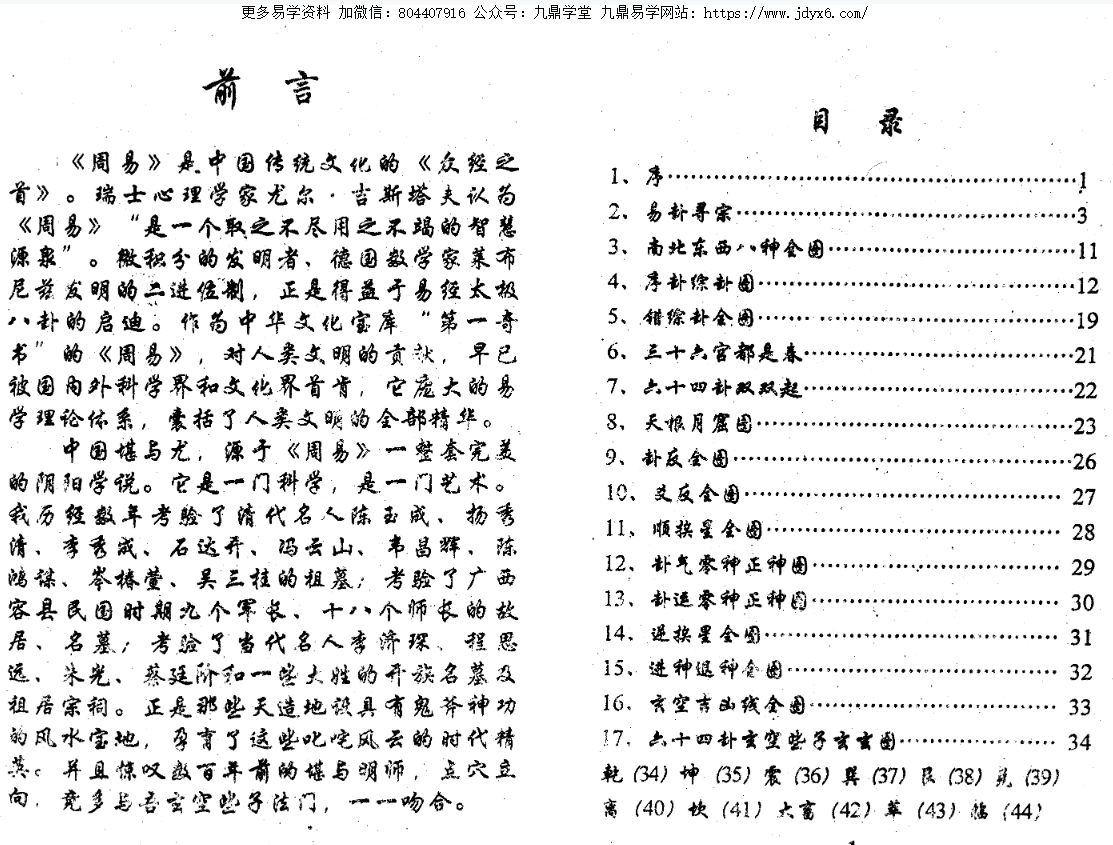 更多易学资料 加微信：804407916 公众号：九鼎学堂 九鼎易学网站：https://www.jdyx6.com/
前 言
《周易》是中国传统文化的《众经之
首》。瑞士心理学家尤尔·吉斯塔夫认为
《周易》“是一个取之不尽用之不竭的智慧
源泉”。微积分的发明者、德国数学家莱布
尼兹发明的二进位制，正是得益于易经太极
八卦的启迪。作为中华文化宝库“第一奇
书”的《周易》，对人类文明的贡献，早已
被国内外科学界和文化界首肯，它庞大的易
学理论体系，囊括了人类文明的全部精华。
中国堪与尤，源于《周易》一整套完美
的阴阳学说。它是一门科学，是一门艺术。
我历经数年考验了清代名人陈玉成、扬秀
清、李秀成、石达开、冯云山、韦昌辉、陈
鸿谋、岑椿萱、吴三桂的祖墓；考验了广西
容县民国时期九个军长、十八个师长的故
居、名墓；考验了当代名人李济琛、程思
远、朱光、蔡廷阶和一些大姓的开族名墓及
祖居宗祠。正是那些天造地设具有鬼斧神功
的风水宝地，孕育了这些叱咤风云的时代精
英。并且惊叹数百年前的堪与明师，点穴立
向，竟多与吾玄空些子法门，一一吻合。
目 录
1、序…………………………………………1
2、易卦寻宗…………………………………3
3、南北东西八神全图………………………11
4、序卦综卦图………………………………12
5、错综卦全图………………………………19
6、三十六宫都是春…………………………21
7、六十四卦双双起…………………………22
8、天根月窟图………………………………23
9、卦反全图…………………………………26
10、爻反全图…………………………………27
11、顺挨星全图………………………………28
12、卦气零神正神图…………………………29
13、卦运零神正神图…………………………30
14、逆挨星全图………………………………31
15、进神退神全图……………………………32
16、玄空吉凶线全图…………………………33
17、六十四卦玄空些子玄玄图………………34
乾（34）坤（35）震（36）巽（37）艮（38）兑（39）
离（40）坎（41）大畜（42）萃（43）（44）